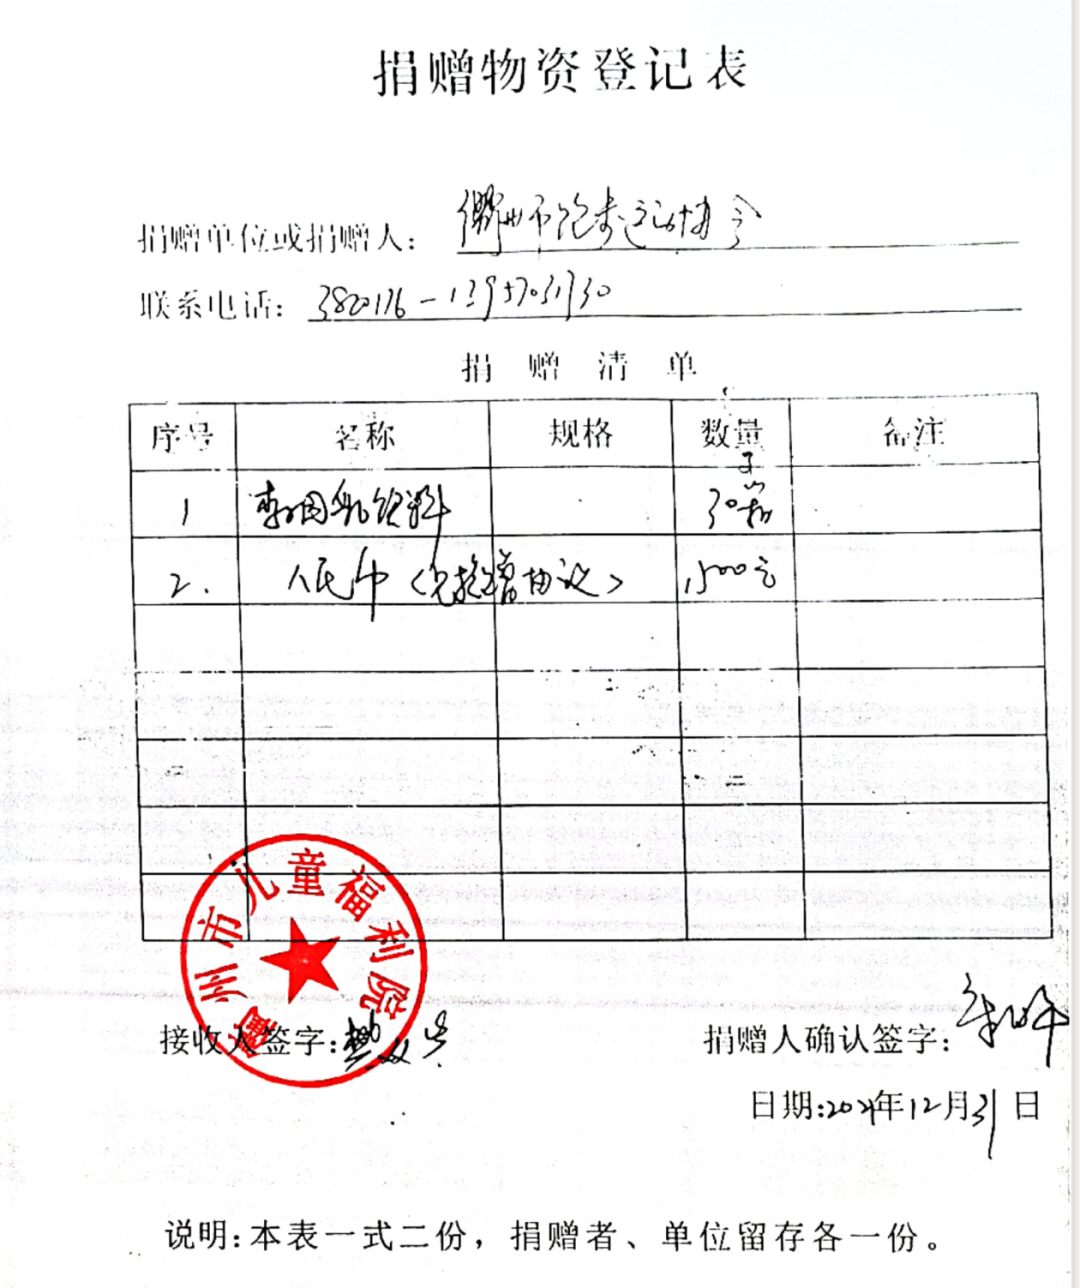 捐赠物资登记表
捐赠单位或捐赠人: 衢州市跑步运动协会
联系电话: 380176-13957031730
捐赠清单
序号 名称 规格 数量 备注
1 乳饮料 30箱
2. 人民币(见捐赠协议) 1500元
衢州市儿童福利院
接收人签字:
捐赠人确认签字:
日期:2021年12月31日
说明:本表一式二份，捐赠者、单位留存各一份。